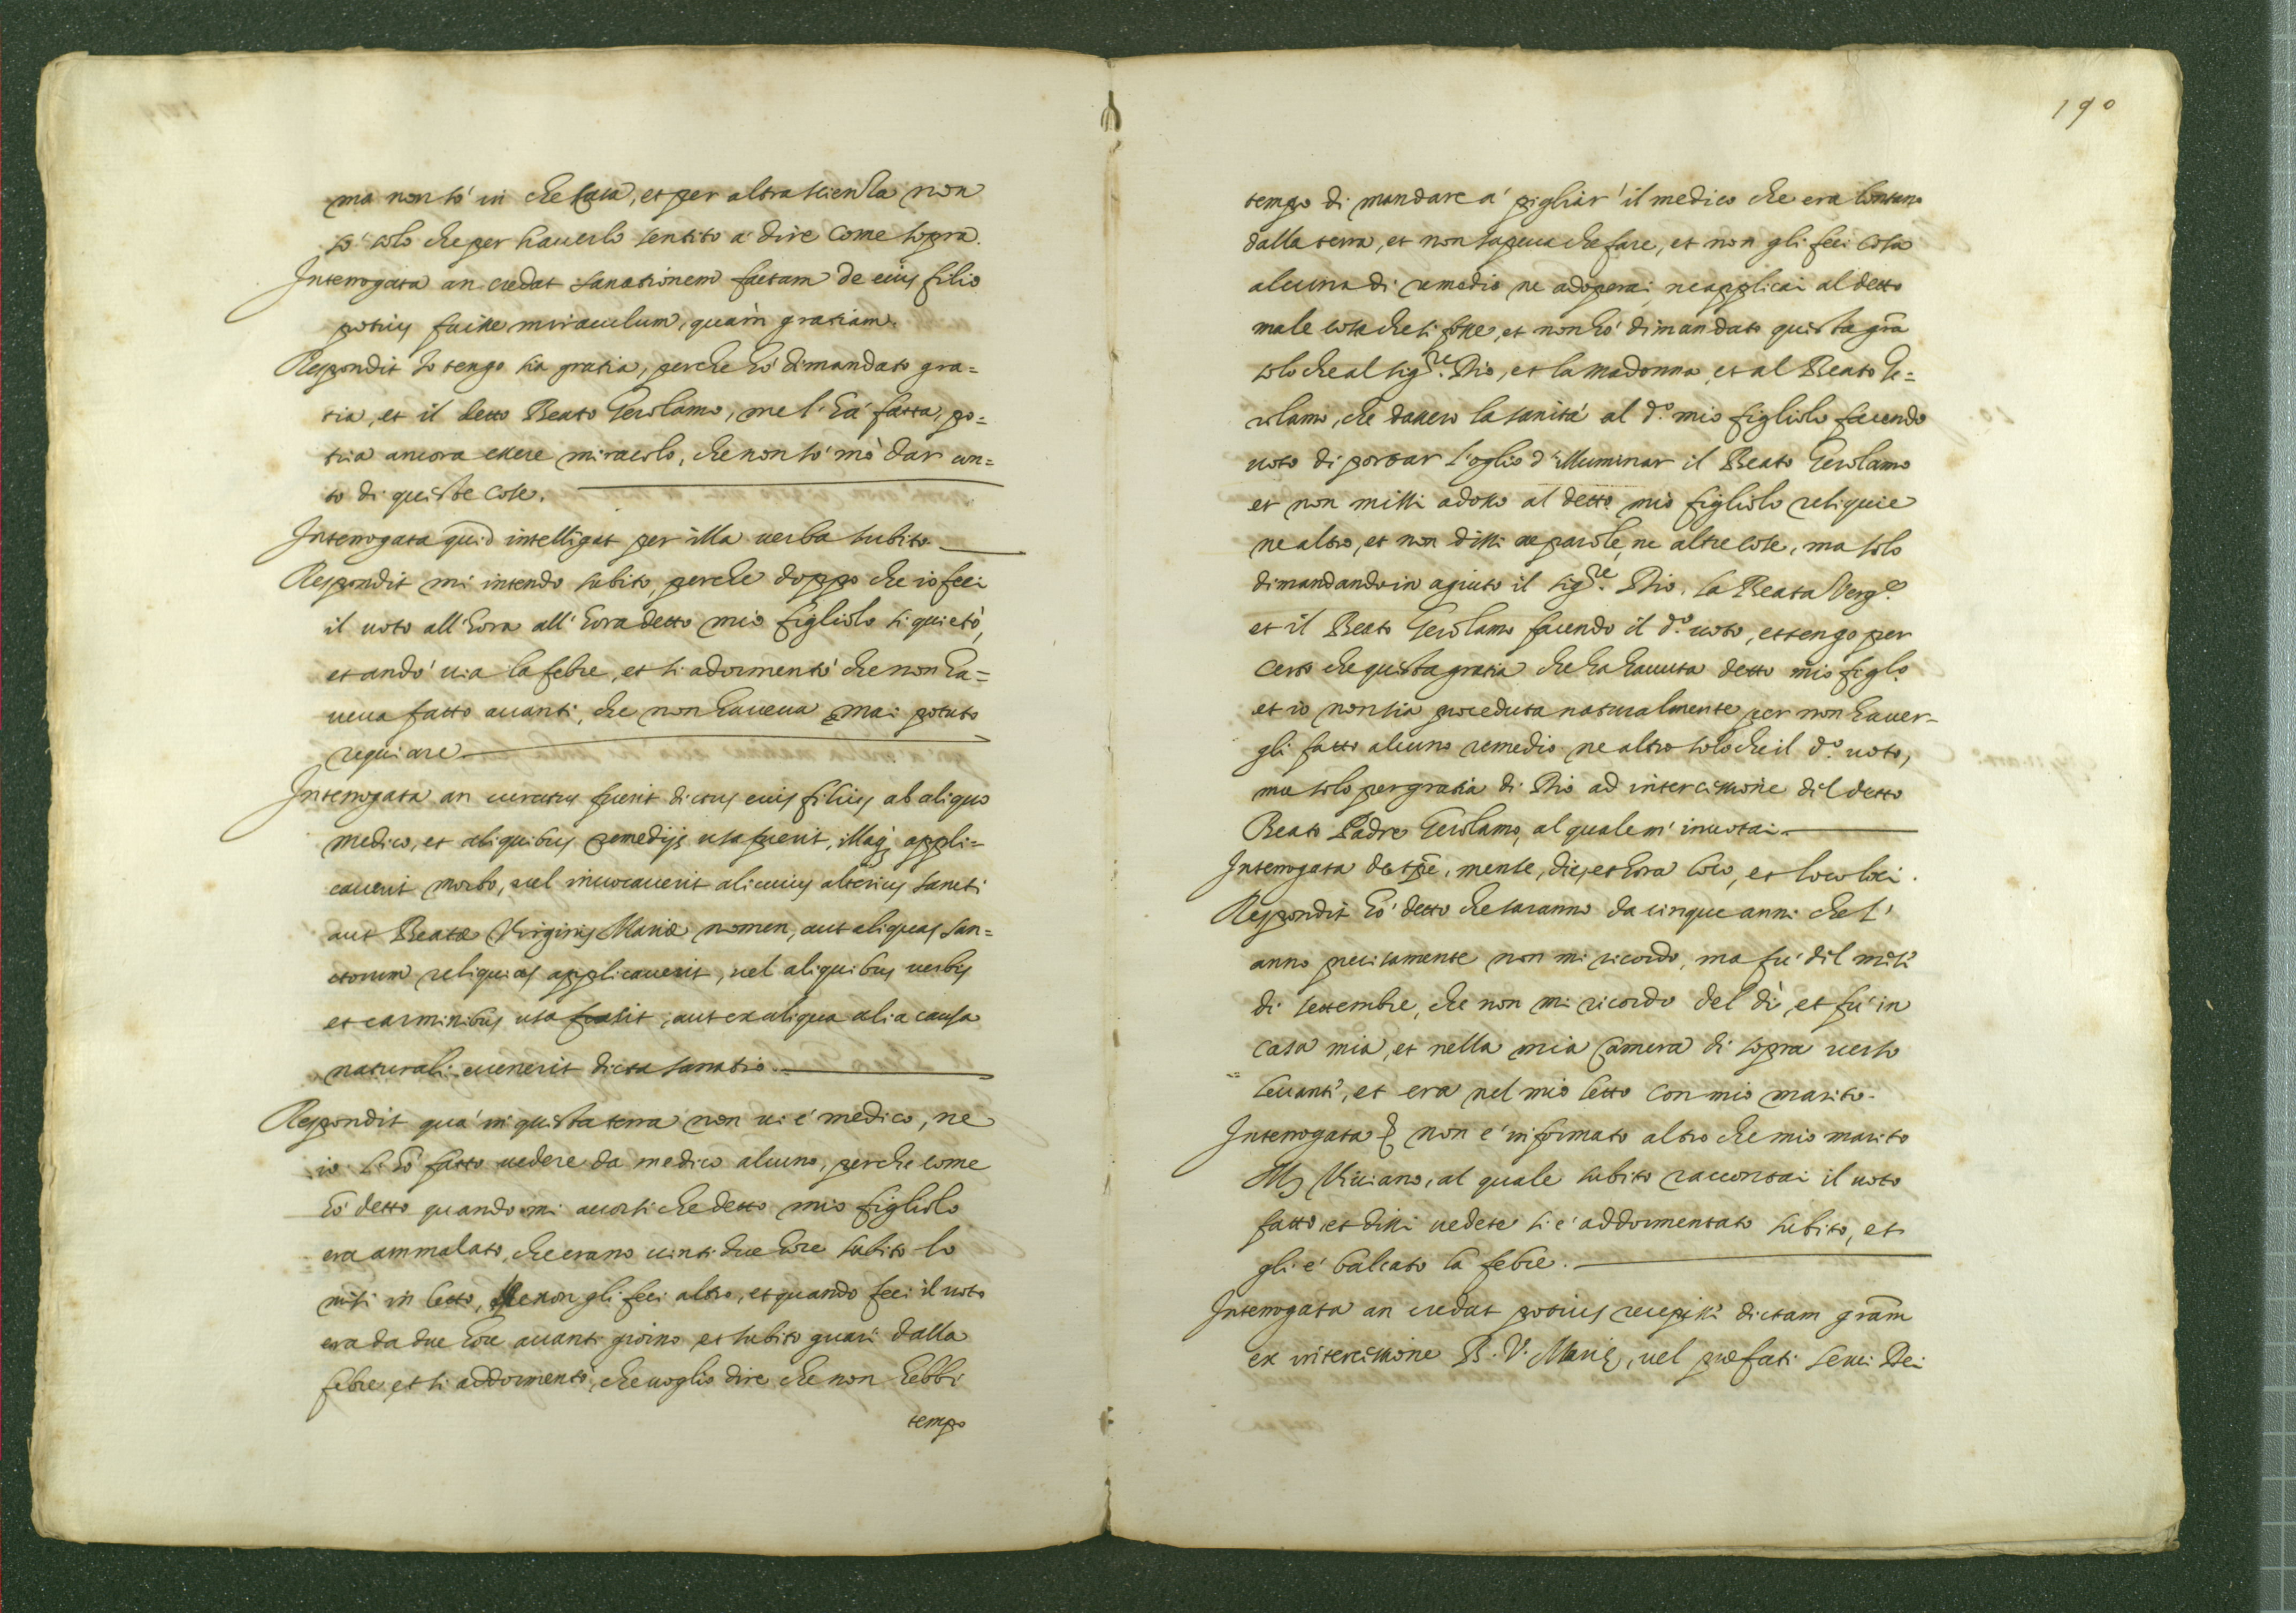 ma non só in che casa, et per altra scienza non
só solo che per hauerlo sentito a dire come sopra.
Interrogata an credat sanationem factam de eius filio
potius fuisse miraculum, quàm gratiam.
Respondit Io tengo sia gratia, perche hó dimandato gra=
tia, et il detto Beato Gerolamo, me l'há fatta, po=
tria ancora essere miracolo, che non só mò dar con=
to di queste cose.
Interrogata quid intelligat per illa uerba subito.
Respondit mi intendo subito, perche doppo che io feci
il uoto all'hora all'hora detto mio figliolo si quietò,
et andó uia la febre, et si adormentó che non ha=
ueua fatto auanti, che non haueua mai potuto
requiare
Interrogata an curatus fuerit dictus eius filius ab aliquo
medico, et aliquibus remedijs usa fuerit, illaq; appli=
cauerit morbo, uel inuocauerit alicuius alterius sancti
aut Beatæ Virginis Mariæ nomen, aut aliquas san=
ctorum reliquias applicauerit, uel aliquibus uerbis
et carminibus usa fuerit, aut ex aliqua alia causa
naturali euenerit dicta sanatio.
Respondit quá in questa terra non ui é medico, ne
io l'hó fatto uedere da medico alcuno, perche come
hó detto quando mi auorsi che detto mio figliolo
era ammalato, che erano uinti due hore subito lo
misi in letto, ne non gli feci altro, et quando feci il uoto
era da due hore auanti giorno, et subito guarí dalla
febre, et si addormentó, che uoglio dire che non hebbi
tempo
190
tempo di mandare á pigliar' il medico che era lontano
dalla terra, et non sapeua che fare, et non gli feci cosa
alcuna di remedio ne adoperai, ne applicai al detto
male cosa che si fosse, et non hó dimandato questa gra
solo che al sig.re Dio, et la madonna, et al Beato Ge=
rolamo, che dassero la sanitá al d.o mio figliolo facendo
uoto di portar l'oglio d'illuminar il Beato Gerolamo
et non missi adosso al detto mio figliolo reliquie
ne altro, et non dissi ne parole, ne altre cose, ma solo
dimandando in agiuto il sig.re Dio, la Beata Verg.e
et il Beato Gerolamo facendo il d.o uoto, et tengo per
certo che questa gratia che ha hauuta detto mio figlo.
et io non sia proceduta naturalmente per non hauer=
gli fatto alcuno remedio ne altro solo che il d.o uoto,
ma solo per gratia di Dio ad intercessione dil detto
Beato Padre Gerolamo, al quale m'inuotai
Interrogata de tpe, mense, die, et hora loco, et loco loci.
Respondit hó detto che saranno da cinque anni che l'
anno precisamente non mi ricordo, ma fú dil mese
di settembre, che non mi ricordo del dì, et fú in
casa mia, et nella mia camera di sopra uerso
leuanti, et era nel mio letto con mio marito.
Interrogata non é informato altro che mio marito
M. Viuiano, al quale subito raccontai il uoto
fatto et dissi uedete si é addormentato subito, et
gli é balcato la febre.
Interrogata an credat potius recepisse dictam gram
ex intercessione B. V. Mariæ, uel præfati serui Dei